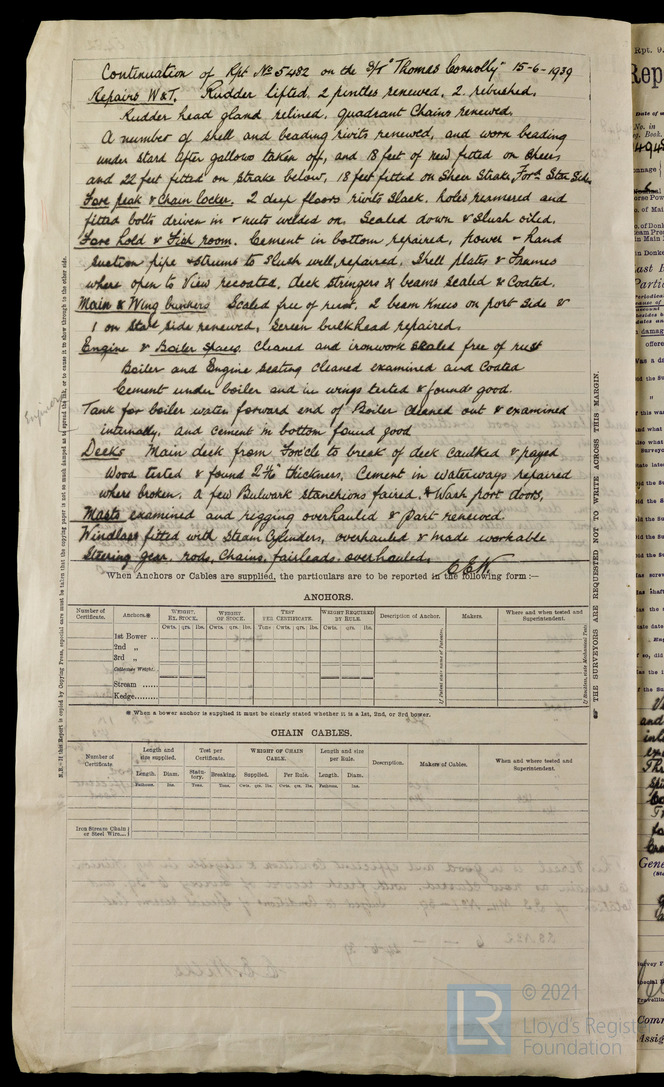 Continuation of Rpt No 5482 on the S/T "Thomas Connolly" 15-6-1939
Repairs W&T. Rudder lifted, 2 pintles renewed, 2 rebushed.
Rudder head gland relined, quadrant Chains renewed.
A number of shell and beading rivits renewed, and worn beading
under starb after gallows taken off, and 18 feet of new fitted on Sheer
and 22 feet fitted on strake below, 18 feet fitted on Sheer Strake, Ford Star Side.
Fore peak & Chain locker. 2 deep floors rivits slack. holes reamered and
fitted bolts driven in & nuts welded on. Scaled down & slush oiled.
Fore hold & Fish room. Cement in bottom repaired, power & hand
suction pipe & strums to slush well repaired. Shell plates & Frames
where open to view recoated, deck stringers & beams scaled & Coated.
Main & Wing bunkers Scaled free of rust. 2 beam knees on port side &
1 on starb side renewed, Screen bulkhead repaired.
Engine & Boiler Spaces Cleaned and ironwork scaled free of rust
Boiler and Engine seating cleaned examined and Coated
Cement under boiler and in wings tested & found good.
Tank for boiler water forward end of Boiler Cleaned out & examined
internally, and cement in bottom found good
Decks Main deck from Foc'cle to break of deck caulked & payed
Wood tested & found thickness, Cement in waterways repaired
where broken. A few Bulwark stanchions faired, & Wash port doors.
Masts examined and rigging overhauled & Part renewed
Windlass fitted with Steam Cylinders, overhauled & made workable
Steering gear, rods, Chains, fairleads, overhauled.
Engineer
When Anchors or Cables are supplied, the particulars are to be reported in the following form :—
ANCHORS.
Number of Certificate. Anchors.* WEIGHT, EX. STOCK. WEIGHT OF STOCK. TEST PER CERTIFICATE. WEIGHT REQUIRED BY RULE. Description of Anchor. Makers. Where and when tested and Superintendent.
Cwts. qrs. lbs. Cwts. qrs. lbs. Tons Cwts. qrs. lbs. Cwts. qrs. lbs.
1st Bower ...
2nd „
3rd „
Collective Weight
Stream ......
Kedge.........
* When a bower anchor is supplied it must be clearly stated whether it is a 1st, 2nd, or 3rd bower.
CHAIN CABLES.
Number of Certificate. Length and size supplied. Test per Certificate. WEIGHT OF CHAIN CABLE. Length and size per Rule. Description. Makers of Cables. When and where tested and Superintendent.
Length. Diam. Statutory. Breaking. Supplied. Per Rule. Length. Diam.
Fathoms. Ins. Tons. Tons. Cwts. qrs. lbs. Cwts. qrs. lbs. Fathoms. Ins.
Iron Stream Chain or Steel Wire...
THE SURVEYORS ARE REQUESTED NOT TO WRITE ACROSS THIS MARGIN.
N.B.—If this Report is copied by Copying Press, especial care must be taken that the copying paper is not so much damped as to spread the ink, or to cause it to show through to the other side.
Rpt. 9.
LR
© 2021
Lloyd's Register
Foundation